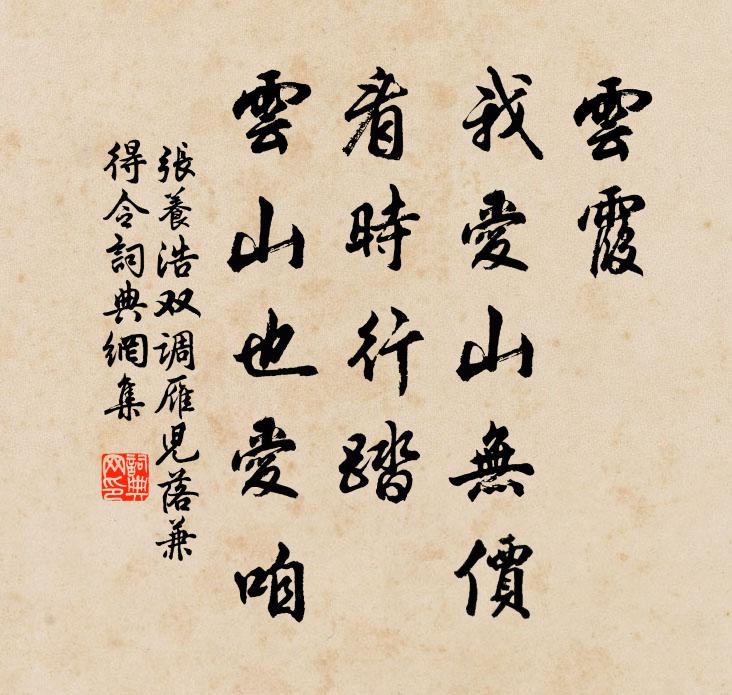 雲霞
我愛山無價
看時行踏
雲山也愛咱
張養浩双调雁児落兼
得令詞典網集
詞典网印